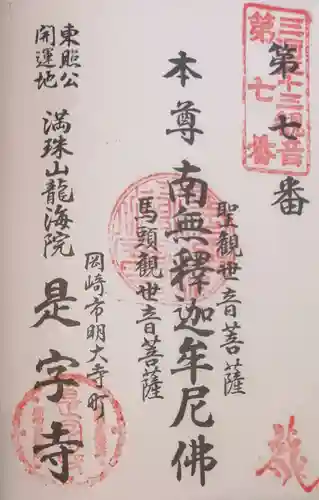 三河三十三観音
第七番
第七番
聖觀世音菩薩
本尊 南無釋迦牟尼佛
馬頭觀世音菩薩
岡崎市明大寺町
東照公
開運地
満珠山龍海院
是字寺
龍